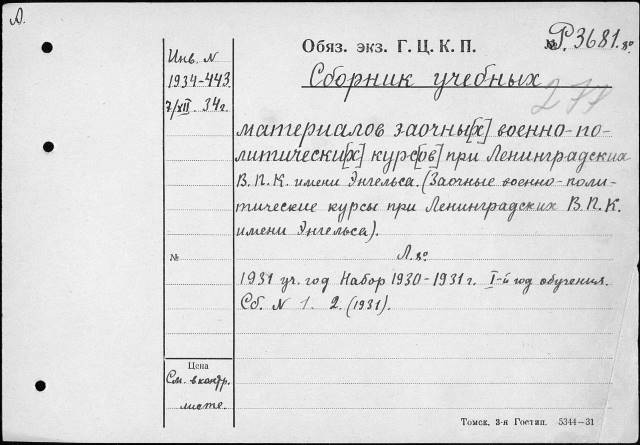 А.
Обяз. экз. Г. Ц. К. П.
№ Р. 3681. 8º
Инв. N
1934-443
7/XII. 34г.
Сборник учебных
277
материалов заочны[х] военно-по-
литически[х] курс[ов] при Ленинградских
В.П.К. имени Энгельса. (Заочные военно-поли-
тические курсы при Ленинградских В.П.К.
имени Энгельса).
№
Л. 8º
1931 уч. год Набор 1930-1931 г. I-й год обучения.
Сб. N 1. 2. (1931).
Цена
См. в контр.
листе.
Томск, 3-я Гостип. 5344—31